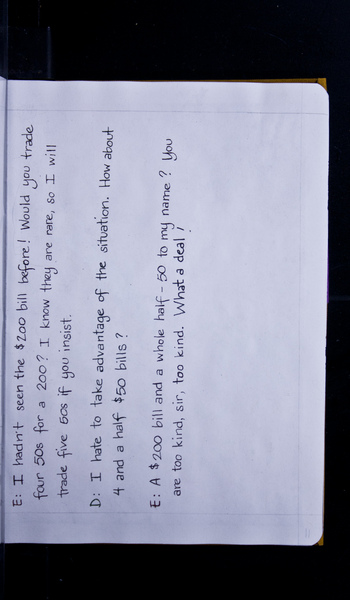 E: I hadn't seen the $200 bill before! Would you trade
four 50s for a 200? I know they are rare, so I will
trade five 50s if you insist.
D: I hate to take advantage of the situation. How about
4 and a half $50 bills?
E: A $200 bill and a whole half-50 to my name? You
are too kind, sir, too kind. What a deal!